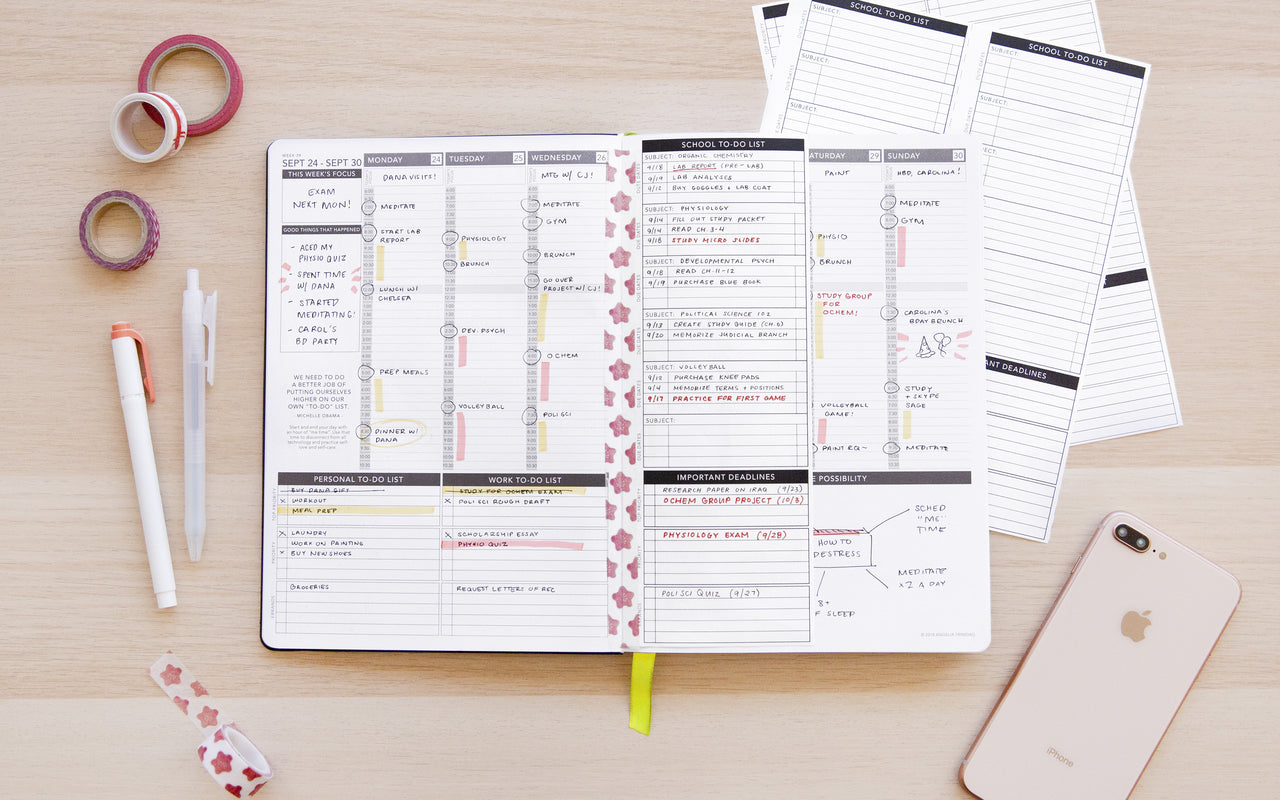 WEEK 39
SEPT 24 - SEPT 30
THIS WEEK'S FOCUS
EXAM
NEXT MON!
GOOD THINGS THAT HAPPENED
- ACED MY
PHYSIO QUIZ
- SPENT TIME
W/ DANA
- STARTED
MEDITATING!
- CAROL'S
BD PARTY
WE NEED TO DO
A BETTER JOB OF
PUTTING OURSELVES
HIGHER ON OUR
OWN "TO-DO" LIST.
- MICHELLE OBAMA
Start and end your day with
an hour of "me time". Use that
time to disconnect from all
technology and practice self-
love and self-care.
MONDAY 24
DANA VISITS!
MEDITATE
START LAB
REPORT
LUNCH W/
CHELSEA
PREP MEALS
DINNER W/
DANA
TUESDAY 25
PHYSIOLOGY
BRUNCH
DEV. PSYCH
VOLLEYBALL
WEDNESDAY 26
MTG W/ CJ!
MEDITATE
GYM
BRUNCH
GO OVER
PROJECT W/ CJ!
OCHEM
POLI SCI
PERSONAL TO-DO LIST
TOP PRIORITY
BUY DANA GIFT
X WORKOUT
MEAL PREP
PRIORITY
X LAUNDRY
WORK ON PAINTING
X BUY NEW SHOES
ERRANDS
GROCERIES
WORK TO-DO LIST
STUDY FOR OCHEM EXAM
X POLI SCI ROUGH DRAFT
X SCHOLARSHIP ESSAY
PHYSIO QUIZ
REQUEST LETTERS OF REC
SCHOOL TO-DO LIST
DUE DATES
SUBJECT: ORGANIC CHEMISTRY
9/18 LAB REPORT (PRE-LAB)
9/19 LAB ANALYSES
9/12 BUY GOGGLES + LAB COAT
SUBJECT: PHYSIOLOGY
9/14 FILL OUT STUDY PACKET
9/14 READ CH. 3-4
9/18 STUDY MICRO SLIDES
SUBJECT: DEVELOPMENTAL PSYCH
9/18 READ CH. 11-12
9/19 PURCHASE BLUE BOOK
SUBJECT: POLITICAL SCIENCE 102
9/13 CREATE STUDY GUIDE (CH.6)
9/20 MEMORIZE JUDICIAL BRANCH
SUBJECT: VOLLEYBALL
9/12 PURCHASE KNEE PADS
9/4 MEMORIZE TERMS + POSITIONS
9/17 PRACTICE FOR FIRST GAME
SUBJECT:
IMPORTANT DEADLINES
RESEARCH PAPER ON IRAQ (9/23)
OCHEM GROUP PROJECT (10/3)
PHYSIOLOGY EXAM (9/28)
POLI SCI QUIZ (9/27)
ATURDAY 29
PAINT
PHYSIO
BRUNCH
STUDY GROUP
FOR
OCHEM!
VOLLEYBALL
GAME!
PAINT RQ~
SUNDAY 30
HBD, CAROLINA!
MEDITATE
GYM
CAROLINA'S
BDAY BRUNCH
STUDY
+ SKYPE
SAGE
MEDITATE
E POSSIBILITY
HOW TO
DESTRESS
SCHED
"ME"
TIME
MEDITATE
X2 A DAY
8+
F SLEEP
SCHOOL TO-DO LIST
DUE DATES
SUBJECT:
SUBJECT:
SCHOOL TO-DO LIST
SUBJECT:
SUBJECT:
ANT DEADLINES
iPhone